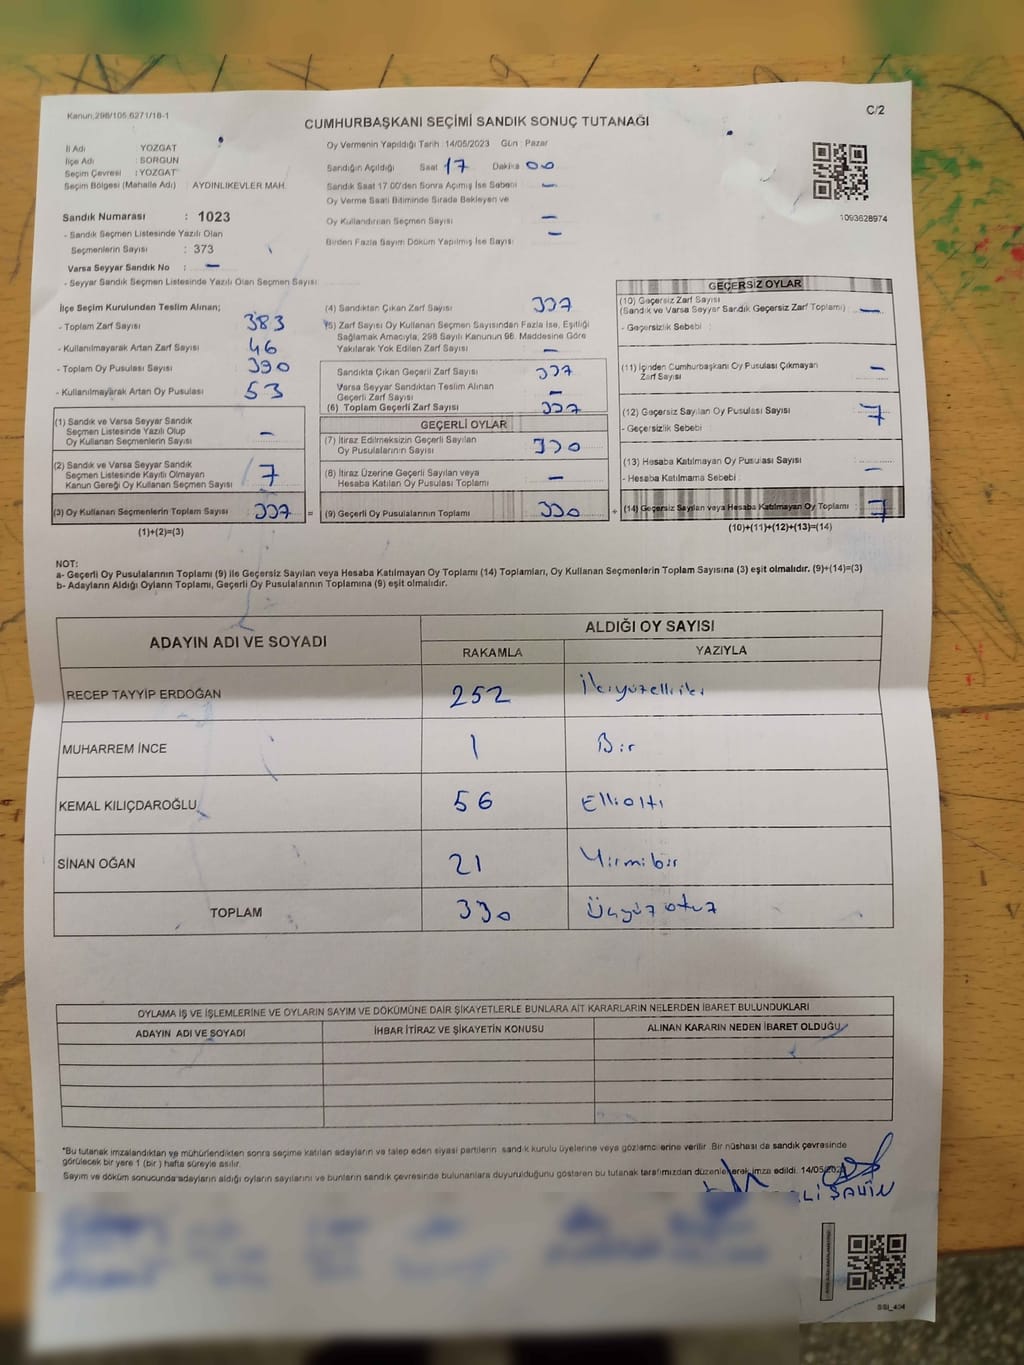 Kanun:298/105,6271/18-1
C/2
CUMHURBAŞKANI SEÇİMİ SANDIK SONUÇ TUTANAĞI
İl Adı YOZGAT
İlçe Adı : SORGUN
Seçim Çevresi : YOZGAT
Seçim Bölgesi (Mahalle Adı) : AYDINLIKEVLER MAH.
Oy Vermenin Yapıldığı Tarih : 14/05/2023 Gün : Pazar
Sandığın Açıldığı Saat 17 Dakika 00
Sandık Saat 17.00'den Sonra Açımış İse Sebebi : –
Oy Verme Saati Bitiminde Sırada Bekleyen ve
Oy Kullandırılan Seçmen Sayısı –
Birden Fazla Sayım Döküm Yapılmış İse Sayısı : –
1093628974
Sandık Numarası : 1023
- Sandık Seçmen Listesinde Yazılı Olan
Seçmenlerin Sayısı : 373
Varsa Seyyar Sandık No : –
- Seyyar Sandık Seçmen Listesinde Yazılı Olan Seçmen Sayısı
İlçe Seçim Kurulundan Teslim Alınan;
- Toplam Zarf Sayısı 383
- Kullanılmayarak Artan Zarf Sayısı 46
- Toplam Oy Pusulası Sayısı 390
- Kullanılmayarak Artan Oy Pusulası 53
(1) Sandık ve Varsa Seyyar Sandık
Seçmen Listesinde Yazılı Olup
Oy Kullanan Seçmenlerin Sayısı –
(2) Sandık ve Varsa Seyyar Sandık
Seçmen Listesinde Kayıtlı Olmayan
Kanun Gereği Oy Kullanan Seçmen Sayısı 7
(3) Oy Kullanan Seçmenlerin Toplam Sayısı 337 =
(1)+(2)=(3)
(4) Sandıktan Çıkan Zarf Sayısı 337
(5) Zarf Sayısı Oy Kullanan Seçmen Sayısından Fazla İse, Eşitliği
Sağlamak Amacıyla, 298 Sayılı Kanunun 98. Maddesine Göre
Yakılarak Yok Edilen Zarf Sayısı –
Sandıkta Çıkan Geçerli Zarf Sayısı 337
Varsa Seyyar Sandıktan Teslim Alınan
Geçerli Zarf Sayısı –
(6) Toplam Geçerli Zarf Sayısı 337
GEÇERLİ OYLAR
(7) İtiraz Edilmeksizin Geçerli Sayılan
Oy Pusulalarının Sayısı 330
(8) İtiraz Üzerine Geçerli Sayılan veya
Hesaba Katılan Oy Pusulası Toplamı –
(9) Geçerli Oy Pusulalarının Toplamı 330 +
GEÇERSİZ OYLAR
(10) Geçersiz Zarf Sayısı
(Sandık ve Varsa Seyyar Sandık Geçersiz Zarf Toplamı) –
- Geçersizlik Sebebi :
(11) İçinden Cumhurbaşkanı Oy Pusulası Çıkmayan
Zarf Sayısı –
(12) Geçersiz Sayılan Oy Pusulası Sayısı 7
- Geçersizlik Sebebi :
(13) Hesaba Katılmayan Oy Pusulası Sayısı –
- Hesaba Katılmama Sebebi :
(14) Geçersiz Sayılan veya Hesaba Katılmayan Oy Toplamı 7
(10)+(11)+(12)+(13)=(14)
NOT:
a- Geçerli Oy Pusulalarının Toplamı (9) ile Geçersiz Sayılan veya Hesaba Katılmayan Oy Toplamı (14) Toplamları, Oy Kullanan Seçmenlerin Toplam Sayısına (3) eşit olmalıdır. (9)+(14)=(3)
b- Adayların Aldığı Oyların Toplamı, Geçerli Oy Pusulalarının Toplamına (9) eşit olmalıdır.
ADAYIN ADI VE SOYADI
ALDIĞI OY SAYISI
RAKAMLA YAZIYLA
RECEP TAYYİP ERDOĞAN 252 İkiyüzelliiki
MUHARREM İNCE 1 Bir
KEMAL KILIÇDAROĞLU 56 Ellialtı
SİNAN OĞAN 21 Yirmibir
TOPLAM 330 Üçyüz otuz
OYLAMA İŞ VE İŞLEMLERİNE VE OYLARIN SAYIM VE DÖKÜMÜNE DAİR ŞİKAYETLERLE BUNLARA AİT KARARLARIN NELERDEN İBARET BULUNDUKLARI
ADAYIN ADI VE SOYADI İHBAR İTİRAZ VE ŞİKAYETİN KONUSU ALINAN KARARIN NEDEN İBARET OLDUĞU
*Bu tutanak imzalandıktan ve mühürlendikten sonra seçime katılan adayların ve talep eden siyasi partilerin sandık kurulu üyelerine veya gözlemcilerine verilir. Bir nüshası da sandık çevresinde
görülecek bir yere 1 (bir) hafta süreyle asılır.
Sayım ve döküm sonucunda adayların aldığı oyların sayılarını ve bunların sandık çevresinde bulunanlara duyurulduğunu gösteren bu tutanak tarafımızdan düzenlenerek imza edildi. 14/05/2023
ŞAHİN
SSI_404